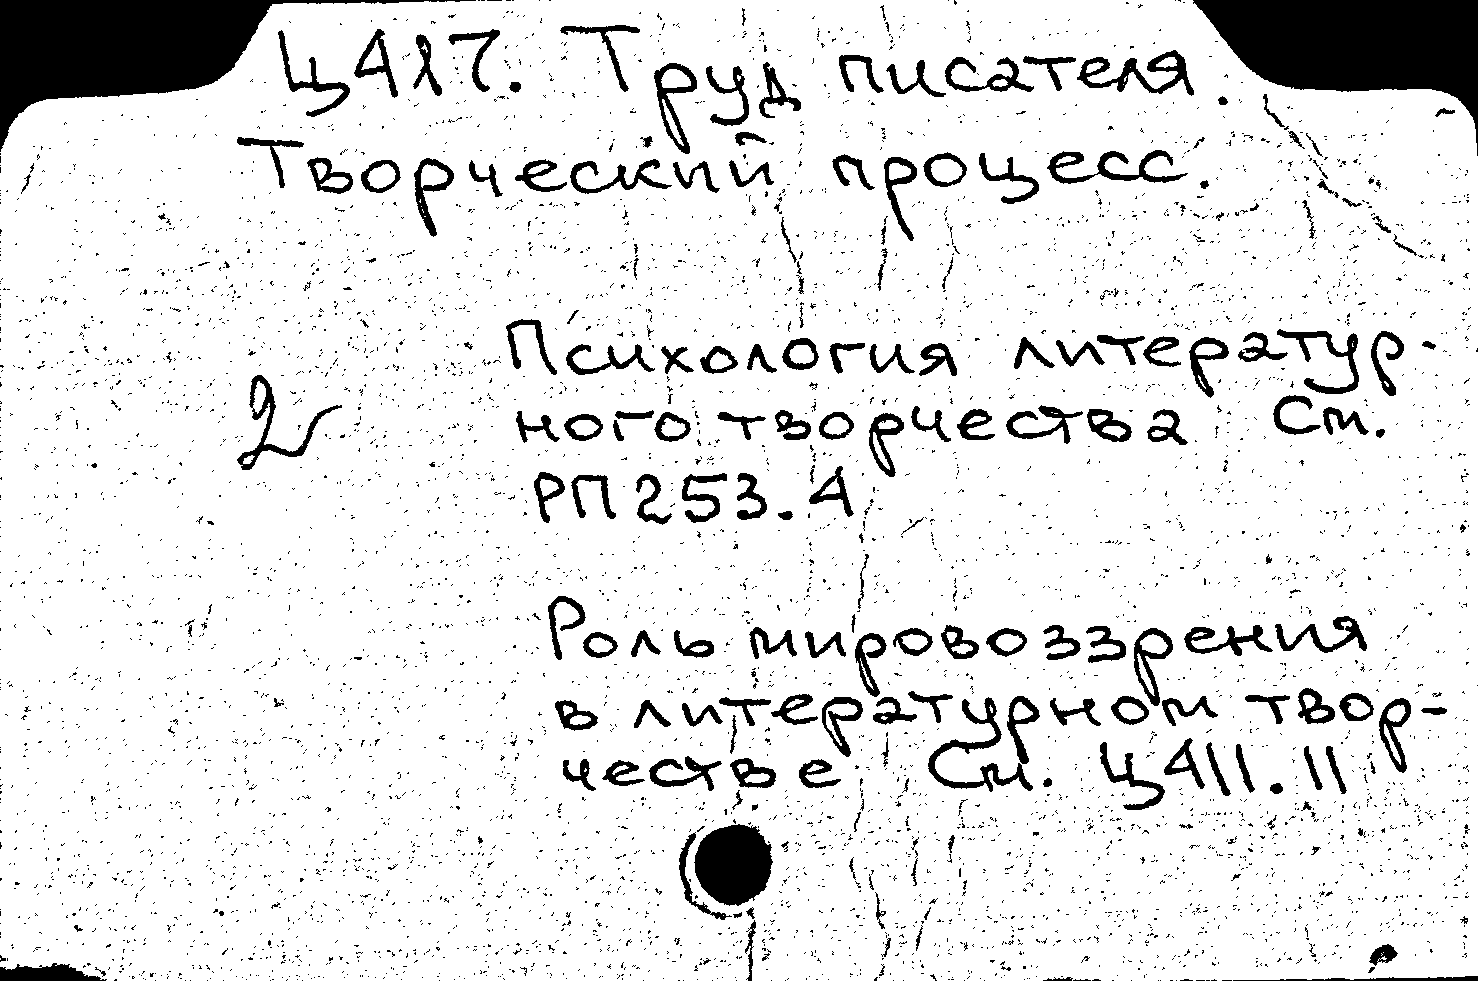 Ц417. Труд писателя.
Творческий процесс.
Психология литератур-
2
ного творчества См.
РП253.4
Роль мировоззрения
в литературном твор-
честве См. Ц411.11